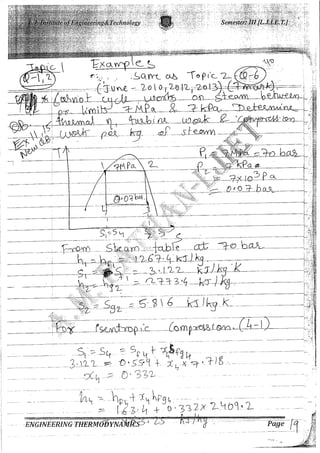 L.J. Institute of Engineering&Technology Semester: III [L.J.I.E.T.]
Topic 1 Examples 40
Q-1,2 same as Topic 2 Q-6
(June - 2010, 2012, 2013) (7 mark)
* Carnot cycle works on steam between
pr. limits 7 MPa & 7 kPa. Determine
thermal η, turbine work & compression
work per kg of steam.
Ex 11.15
New GB.
T
1 7MPa 2
P1 = 7MPa = 70 bar
P2 = 7 kPa
= 7x10³ Pa
= 0.07 bar
0.07 bar
4
S1=S4 S
From Steam table at 70 bar
h1 = hf1 = 1267.4 kJ/kg.
S1 = Sf1 = 3.122 kJ/kg K
h2 = hg2 = 2773.4 kJ/kg
S2 = Sg2 = 5.816 kJ/kg K.
For isentropic compression. (4-1)
S1 = S4 = Sf4 + x4 Sfg4
3.122 = 0.559 + x4 x 7.718
x4 = 0.332
h4 = hf4 + x4 hfg4
= 163.4 + 0.332 x 2409.2
ENGINEERING THERMODYNAMICS Page 19